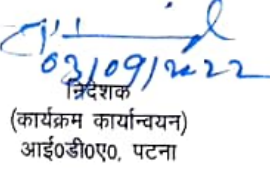 03/09/2022
निदेशक
(कार्यक्रम कार्यान्वयन)
आई०डी०ए०, पटना